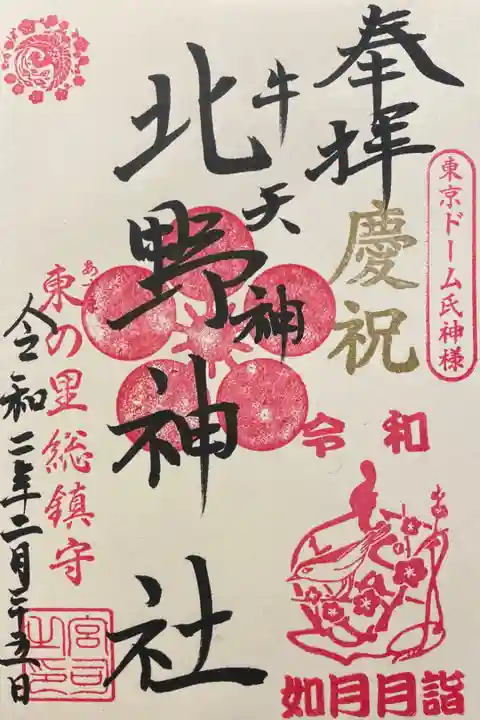 奉拝
慶祝
東京ドーム氏神様
令和
如月月詣
牛天神
北野神社
東の里総鎮守
あ
令和二年二月二十五日
宮司之印